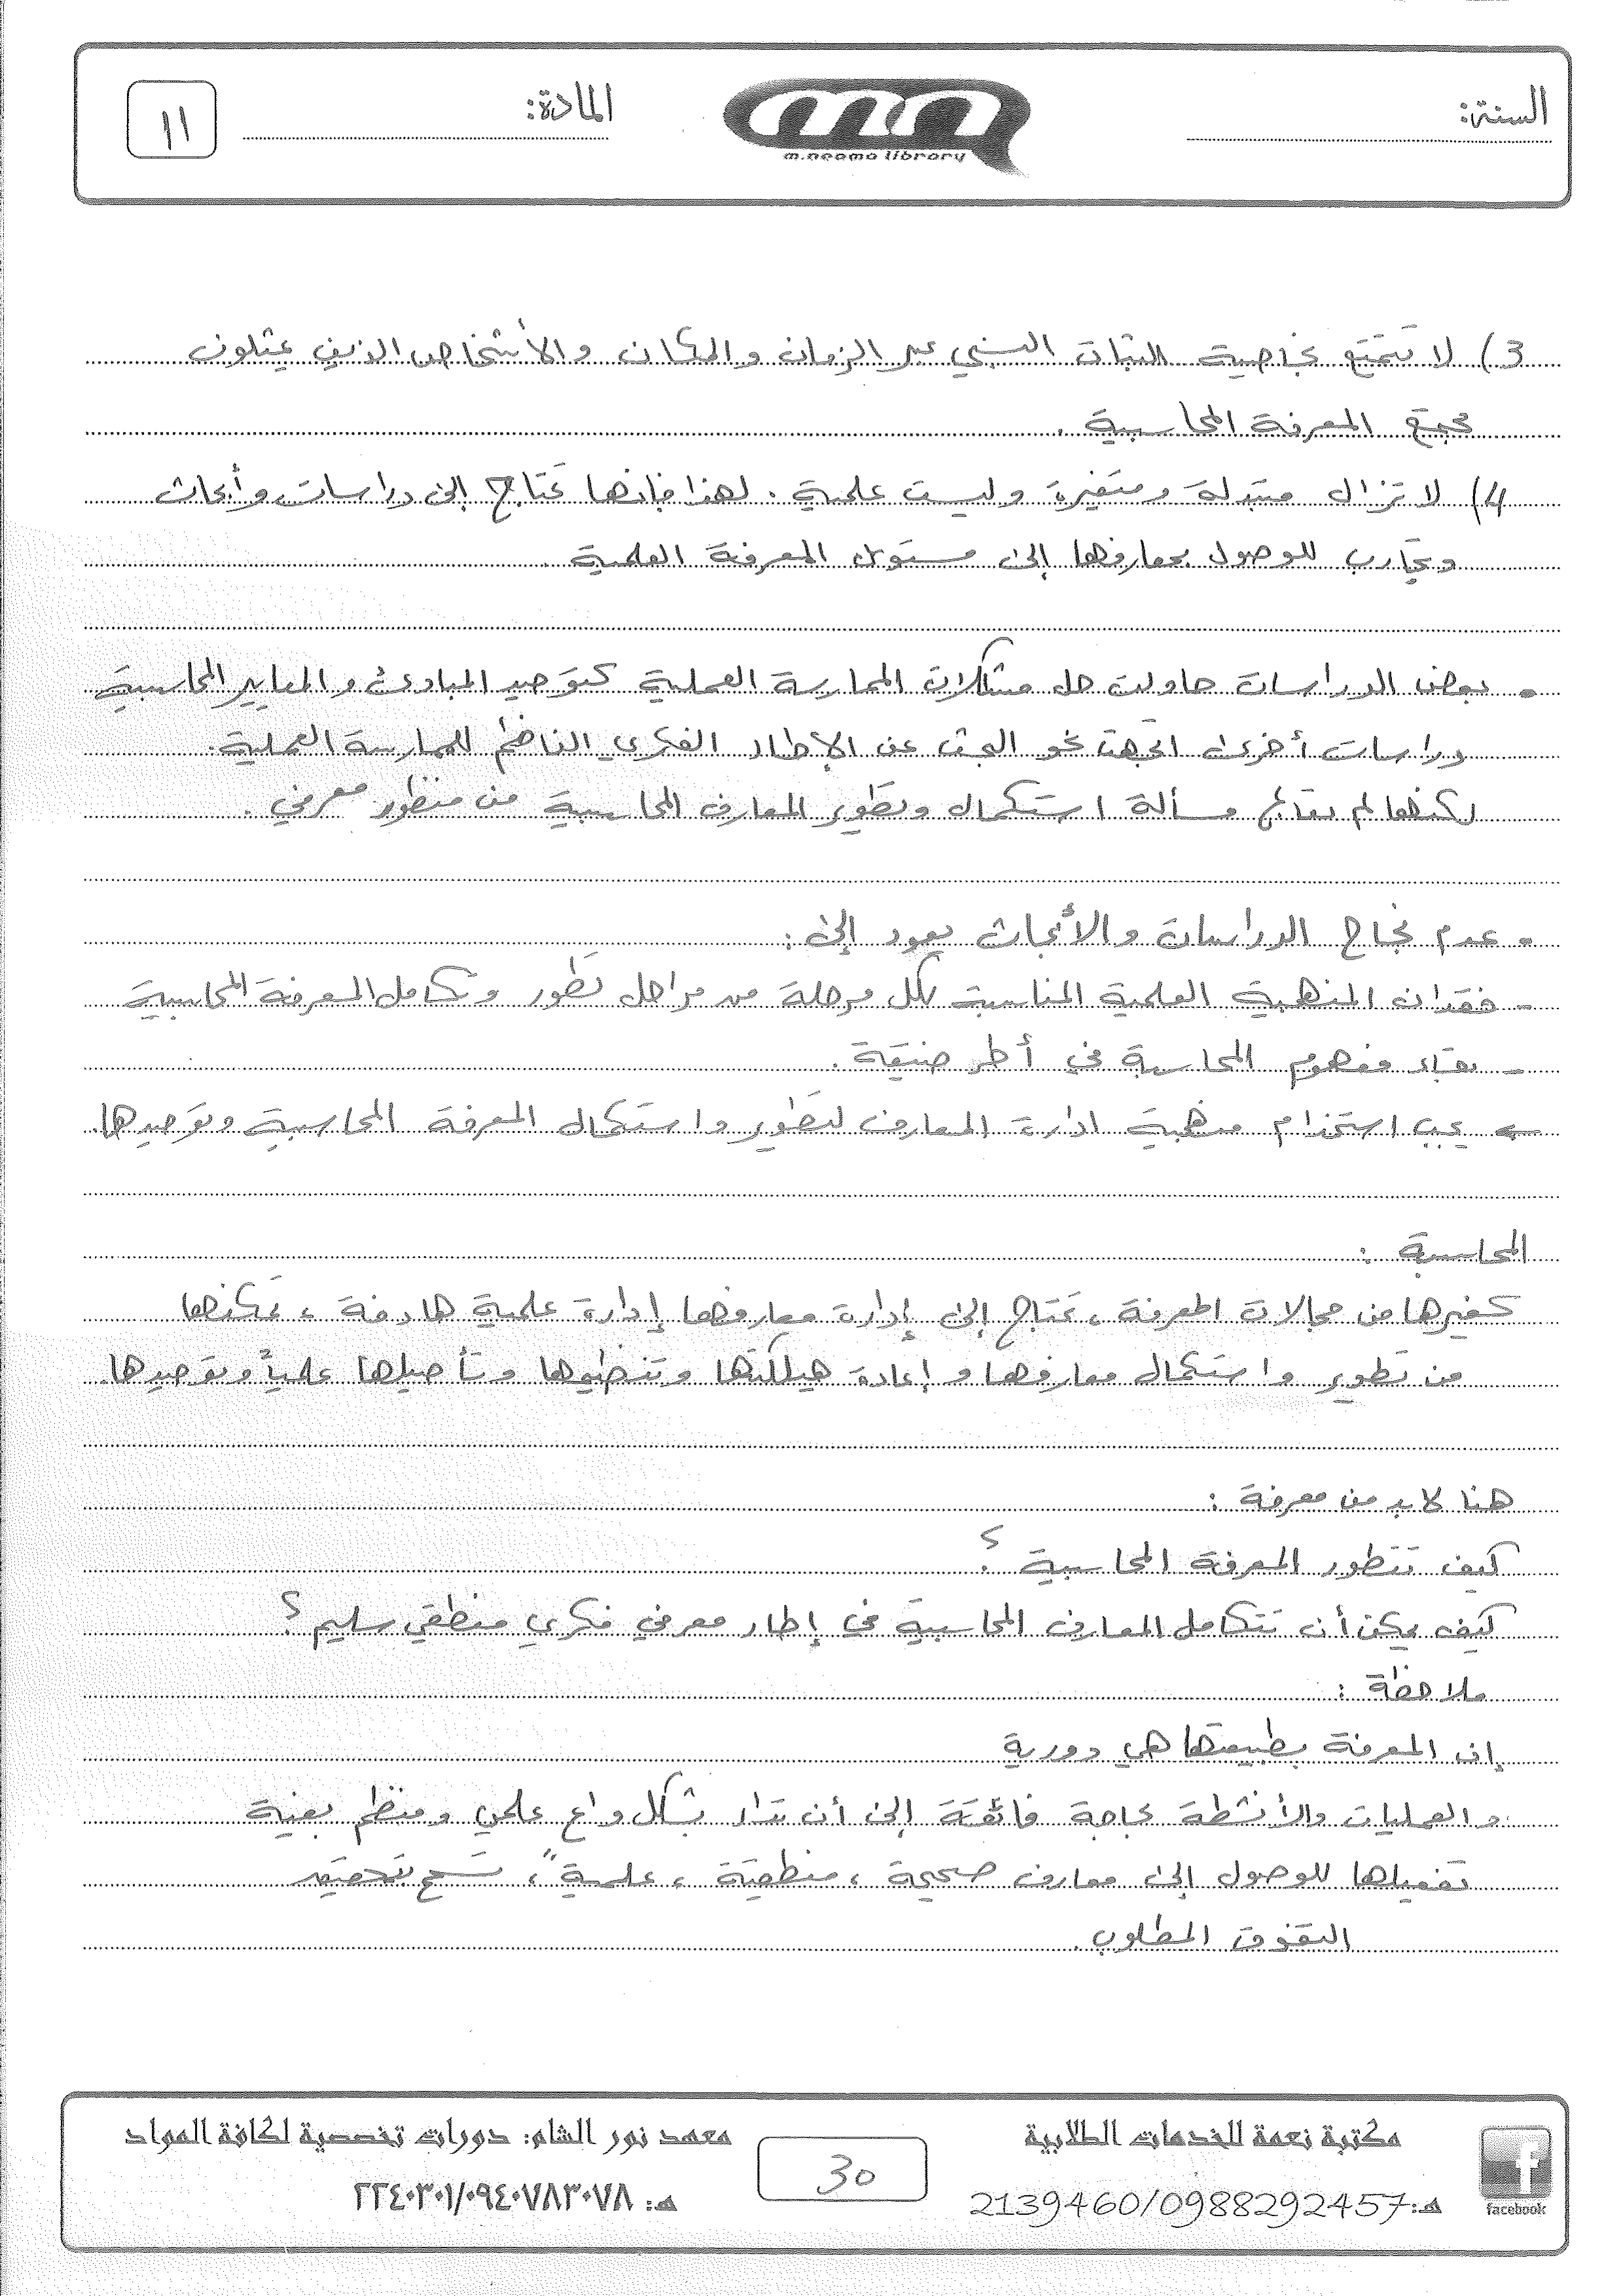 السنة:
m.neama library
المادة:
١١
3) لا تتمتع بخاصية الثبات النسبي عبر الزمان والمكان والأشخاص الذين يمثلون
مجتمع المعرفة المحاسبية .
4) لا تزال متبدلة ومتغيرة وليست علمية . لهذا فإنها تحتاج إلى دراسات وأبحاث
وتجارب للوصول بمعارفها إلى مستوى المعرفة العلمية .
• بعض الدراسات حاولت حل مشكلات الممارسة العملية كتوحيد المبادئ والمعايير المحاسبية
دراسات أخرى اتجهت نحو البحث عن الإطار الفكري الناظم للممارسة العملية .
لكنها لم تعالج مسألة استكمال وتطوير المعارف المحاسبية من منظور معرفي .
• عدم نجاح الدراسات والأبحاث يعود إلى :
- فقدان المنهجية العلمية المناسبة لكل مرحلة من مراحل تطور وتكامل المعرفة المحاسبية
- بقاء مفهوم المحاسبة في أطر ضيقة .
← يجب استخدام منهجية ادارة المعارف لتطوير واستكمال المعرفة المحاسبية وتوحيدها.
المحاسبة :
كغيرها من مجالات المعرفة ، تحتاج إلى إدارة معارفها إدارة علمية هادفة ، تمكنها
من تطوير واستكمال معارفها و إعادة هيكلتها وتنظيمها وتأصيلها علمياً وتوحيدها.
هنا لابد من معرفة :
كيف تتطور المعرفة المحاسبية ؟
كيف يمكن أن تتكامل المعارف المحاسبية في إطار معرفي فكري منطقي سليم ؟
ملاحظة :
إن المعرفة بطبيعتها هي دورية
و العمليات والأنشطة بحاجة فائقة إلى أن تدار بشكل واع علمي ومنظم بغية
تفعيلها للوصول إلى معارف صحيحة ، منطقية ، علمية ، تسمح بتحقيق
التفوق المطلوب .
facebook
مكتبة نعمة للخدمات الطلابية
هـ: 2139460/0988292457
30
معهد نور الشام: دورات تخصصية لكافة المواد
هـ: ٢٢٤٠٣٠١/٠٩٤٠٧٨٣٠٧٨